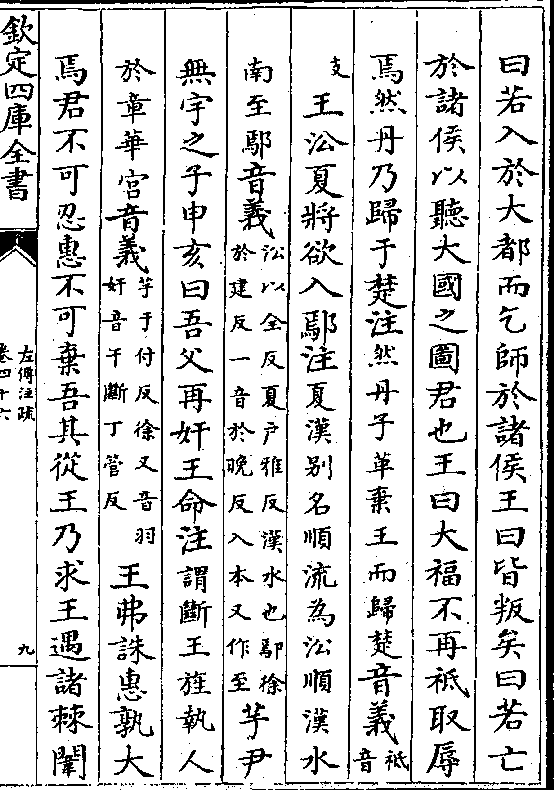 曰若入於大都而乞師於諸侯王曰皆叛矣曰若亡
於諸侯以聽大國之圖君也王曰大福不再祗取辱
焉然丹乃歸于楚注然丹子革棄王而歸楚音義祗音
支王㳂夏將欲入鄢注夏漢别名順流為㳂順漢水
南至鄢音義㳂以全反夏户雅反漢水也鄢徐於建反一音於晚反入本又作至芋尹
無宇之子申亥曰吾父再奸王命注謂斷王旌執人
於章華宫音義芋于付反徐又音羽奸音干斷丁管反王弗誅惠孰大
焉君不可忍惠不可棄吾其從王乃求王遇諸棘闈
欽定四庫全書
左傳注疏
卷四十六
九